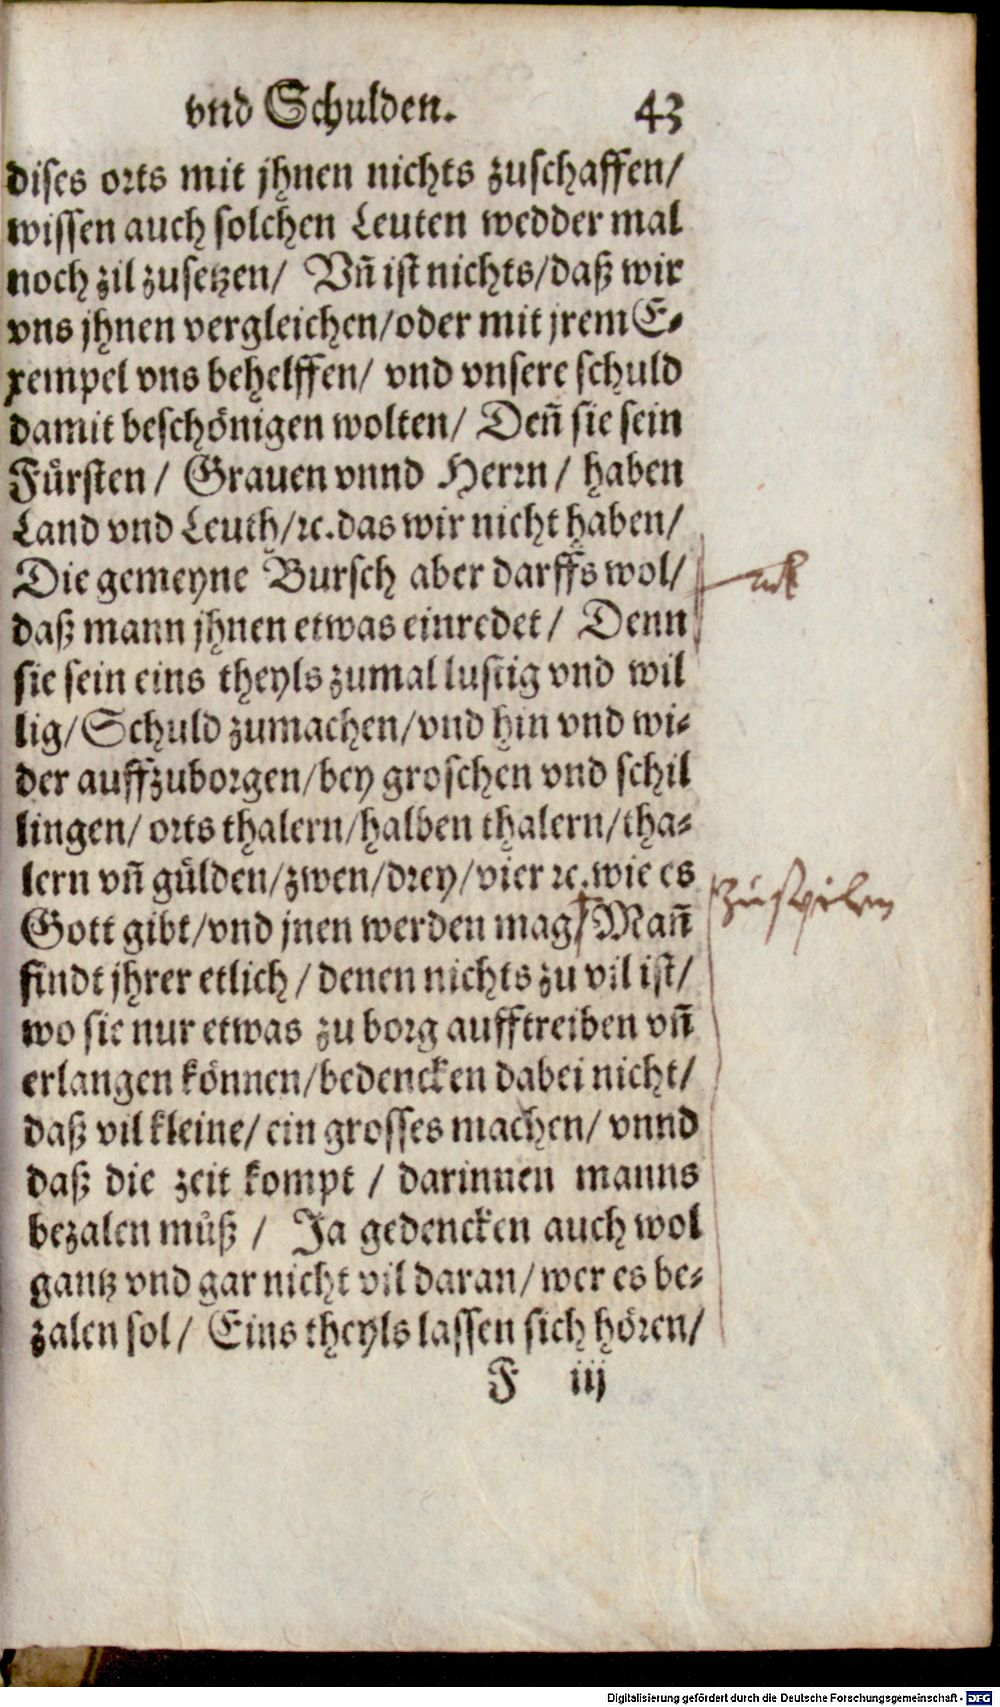 vnd Schulden. 43
dises orts mit jhnen nichts zuschaffen/
wissen auch solchen Leuten wedder mal
noch zil zusetzen/ Vn̄ ist nichts/daß wir
vns jhnen vergleichen/oder mit jrem E-
xempel vns behelffen/ vnd vnsere schuld
damit beschönigen wolten/ Den̄ sie sein
Fürsten/ Grauen vnnd Herrn/ haben
Land vnd Leuth/ꝛc.das wir nicht haben/
Die gemeyne Bursch aber darffs wol/
daß mann jhnen etwas einredet/ Denn
sie sein eins theyls zumal lustig vnd wil
lig/Schuld zumachen/vnd hin vnd wi-
der auffzuborgen/bey groschen vnd schil
lingen/ orts thalern/halben thalern/tha-
lern vn̄ gülden/zwen/drey/vier ꝛc.wie es
Gott gibt/vnd jnen werden mag/Man̄
zuspilen
findt jhrer etlich/denen nichts zu vil ist/
wo sie nur etwas zu borg aufftreiben vn̄
erlangen können/bedencken dabei nicht/
daß vil kleine/ein grosses machen/ vnnd
daß die zeit kompt / darinnen manns
bezalen müß / Ja gedencken auch wol
gantz vnd gar nicht vil daran/wer es be-
zalen sol/ Eins theyls lassen sich hören/
F iij
Digitalisierung gefördert durch die Deutsche Forschungsgemeinschaft - DFG